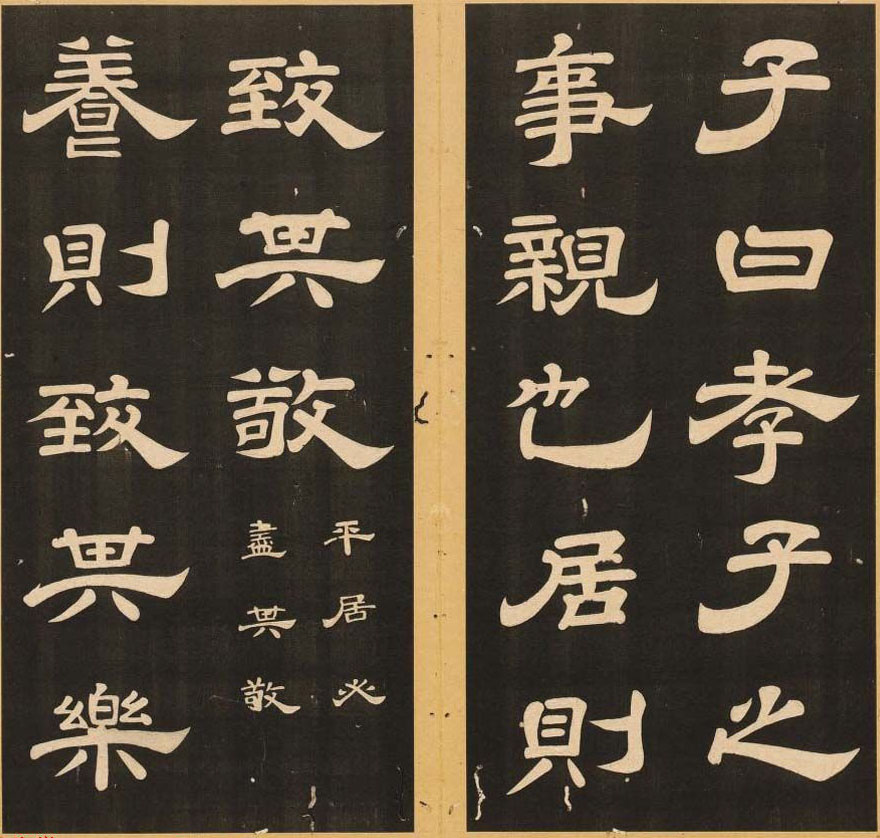 子曰孝子之
事親也居則
致其敬
平居必
盡其敬
養則致其樂